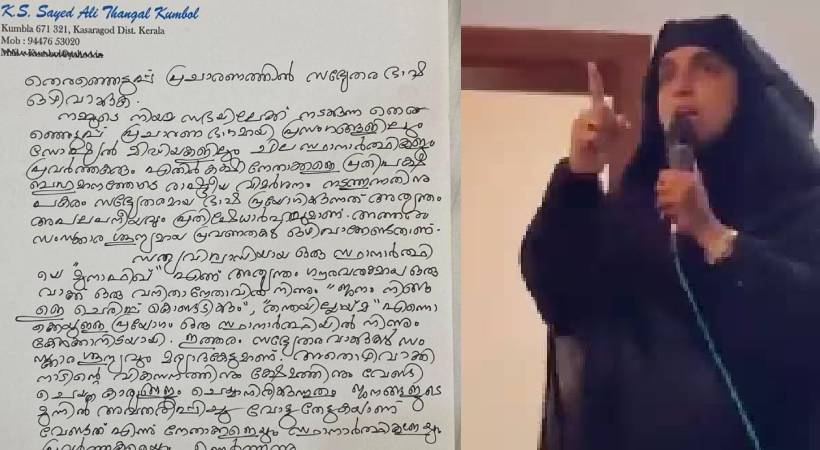 K.S. Sayed Ali Thangal Kumbol
Kumbla 671 321, Kasaragod Dist. Kerala
Mob : 94476 53020
തെരഞ്ഞെടുപ്പ് പ്രചാരണത്തിൽ സഭ്യേതര ഭാഷ
ഒഴിവാക്കുക.
നമ്മുടെ നിയമ സഭയിലേക്ക് നടക്കുന്ന തെരഞ്
ഞെടുപ്പ് പ്രചാരണ ഭാഗമായി പ്രസംഗങ്ങളിലും
സോഷ്യൽ മീഡിയകളിലും ചില സ്ഥാനാർത്ഥികളും
പ്രവർത്തകരും എതിർ കക്ഷി നേതാക്കളെ പ്രതിപക്ഷ
ബഹുമാനത്തോടെ രാഷ്ട്രീയ വിമർശനം നടത്തുന്നതിനു
പകരം സഭ്യേതരമായ ഭാഷ പ്രയോഗിക്കുന്നത് അത്യന്തം
അപലപനീയവും പ്രതിഷേധാർഹവുമാണ്. അത്തരം
സംസ്കാര ശൂന്യമായ പ്രവണതകൾ ഒഴിവാക്കേണ്ടതാണ്.
സത്യവിശ്വാസിയായ ഒരു സ്ഥാനാർത്ഥി
യെ "മുനാഫിഖ്" എന്ന് അത്യന്തം ഗൗരവതരമായ ഒരു
വാക്ക് ഒരു വനിതാനേതാവിൽ നിന്നും "ജനം നിങ്ങ
ളെ ചെരിപ്പ് കൊണ്ടടിക്കും", "തന്തയില്ലായ്മ" എന്നൊ
ക്കെയുള്ള പ്രയോഗം ഒരു സ്ഥാനാർത്ഥിയിൽ നിന്നും
കേൾക്കാനിടയായി. ഇത്തരം സഭ്യേതര വാക്കുകൾ സം
സ്കാര ശൂന്യവും മര്യാദകേടുമാണ്. അതൊഴിവാക്കി
നാടിന്റെ വികസനത്തിനും ക്ഷേമത്തിനും വേണ്ടി
ചെയ്ത കാര്യങ്ങളും ചെയ്യാനിരിക്കുന്നതും ജനങ്ങളുടെ
മുന്നിൽ അവതരിപ്പിച്ചു വോട്ടു തേടുകയാണ്
വേണ്ടത് എന്ന് നേതാക്കളെയും സ്ഥാനാർത്ഥികളെയും
പ്രവർത്തകരെയും ഉണർത്തുന്നു